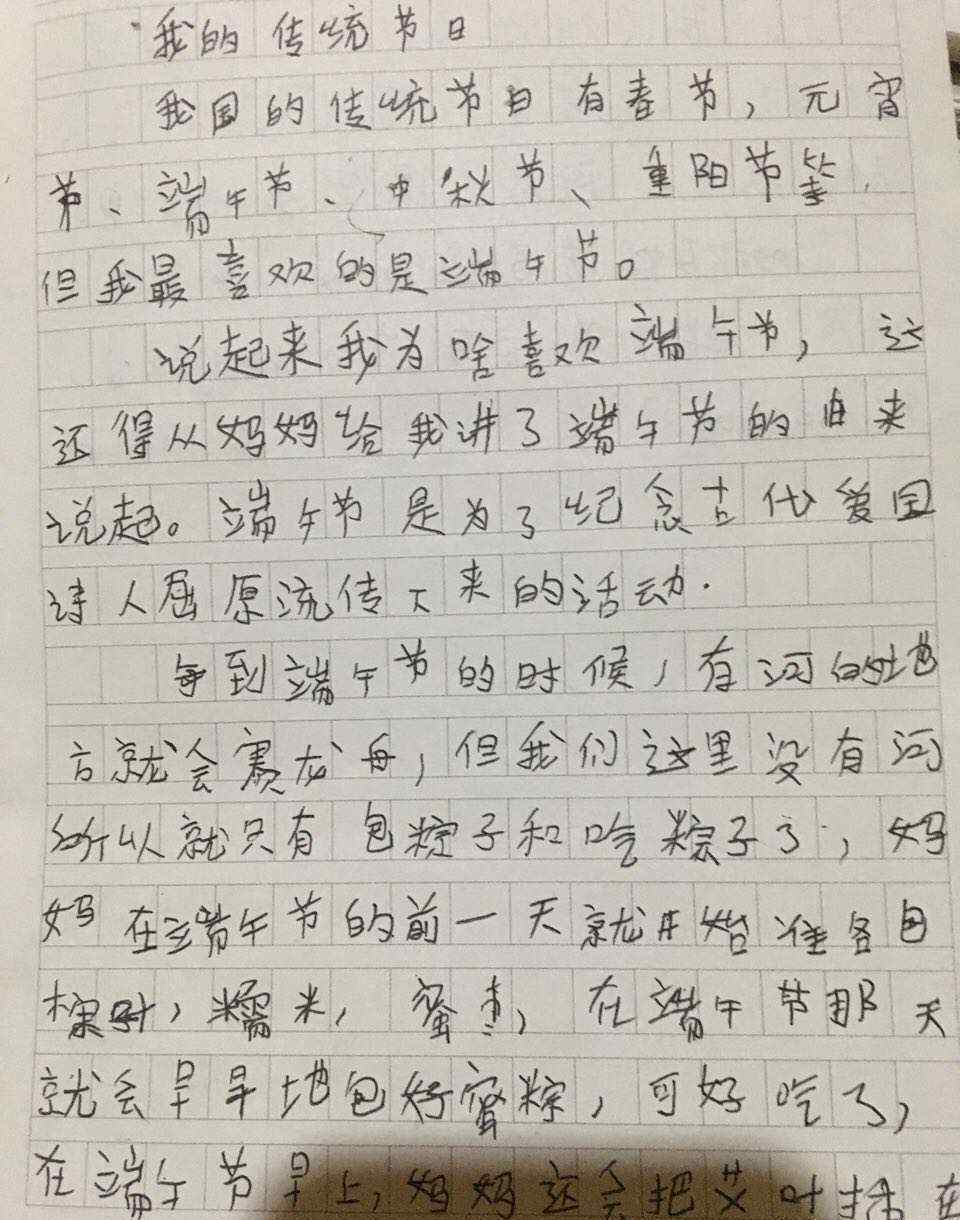 我的传统节日
我国的传统节日有春节，元宵
节、端午节、中秋节、重阳节等，
但我最喜欢的是端午节。
说起来我为啥喜欢端午节，这
还得从妈妈给我讲了端午节的由来
说起。端午节是为了纪念古代爱国
诗人屈原流传下来的活动.
每到端午节的时候，有河的地
方就会赛龙舟，但我们这里没有河
所以就只有包粽子和吃粽子了，妈
妈在端午节的前一天就开始准备包
粽叶，糯米，蜜枣，在端午节那天
就会早早地包好蜜粽，可好吃了，
在端午节早上，妈妈还会把艾叶插在